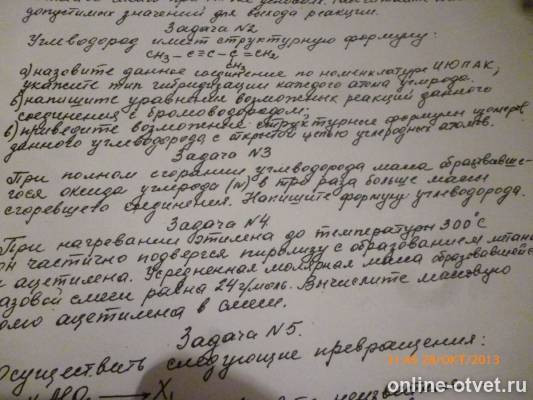 допустимых значений для выхода реакции.
Задача №2
Углеводород имеет структурную формулу:
CH3 - C≡C - C = CH2
CH3
а) назовите данное соединение по номенклатуре ИЮПАК,
укажите тип гибридизации каждого атома углерода.
б) напишите уравнения возможных реакций данного
соединения с бромоводородом;
в) приведите возможные структурные формулы изомеров
данного углеводорода с открытой цепью углеродных атомов.
Задача №3
При полном сгорании углеводорода масса образовавше-
гося оксида углерода (IV) в три раза больше массы
сгоревшего соединения. Напишите формулу углеводорода.
Задача №4
При нагревании этилена до температуры 300°С
он частично подвергся пиролизу с образованием метана
и ацетилена. Усредненная молярная масса образовавшейся
газовой смеси равна 24 г/моль. Вычислите массовую
долю ацетилена в смеси.
Задача №5.
Осуществить следующие превращения:
→ X1
11:46 28/ОКТ/2013
online-otvet.ru